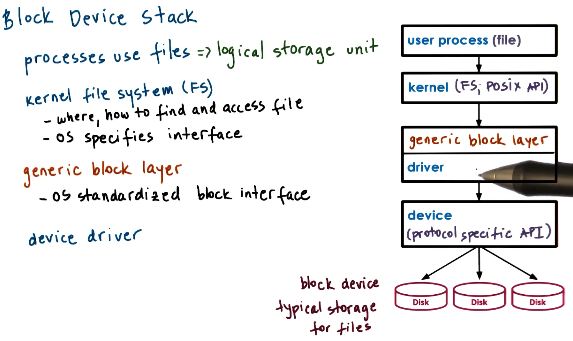 Block Device Stack
processes use files => logical storage unit
kernel file system (FS)
- where, how to find and access file
- OS specifies interface
generic block layer
- OS standardized block interface
device driver
user process (file)
kernel (FS, POSIX API)
generic block layer
driver
device
(protocol specific API)
block device
typical storage
for files
Disk
Disk
Disk